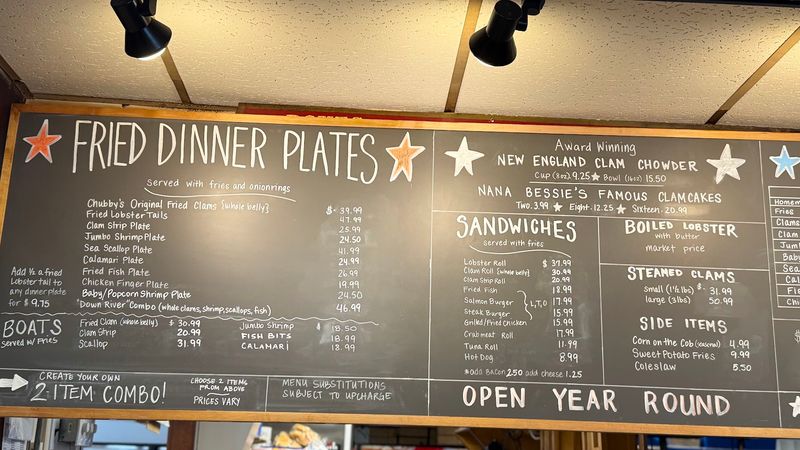 FRIED DINNER PLATES
served with fries and onionrings
Chubby's Original Fried Clams {whole belly} $ 39.99
Fried Lobster Tails 47.99
Clam Strip Plate 25.99
Jumbo Shrimp Plate 24.50
Sea Scallop Plate 41.99
Calamari Plate 24.99
Fried Fish Plate 26.99
Chicken Finger Plate 19.99
Baby/Popcorn Shrimp Plate 24.50
"Down River" Combo (whole clams, shrimp, scallops, fish) 46.99
Add ½ a fried
lobster tail to
any dinner plate
for $ 9.75
BOATS
served w/ Fries
Fried Clam (whole belly) $ 30.99
Clam Strip 20.99
Scallop 31.99
Jumbo Shrimp $ 18.50
FISH BITS 18.99
CALAMARI 18.99
CREATE YOUR OWN
2 ITEM COMBO!
CHOOSE 2 ITEMS
FROM ABOVE
PRICES VARY
MENU SUBSTITUTIONS
SUBJECT TO UPCHARGE
Award Winning
NEW ENGLAND CLAM CHOWDER
Cup (8oz) 9.25 Bowl (16oz) 15.50
NANA BESSIE'S FAMOUS CLAMCAKES
Two. 3.99 Eight. 12.25 Sixteen. 20.99
SANDWICHES
served with fries
Lobster Roll $ 37.99
Clam Roll (whole belly) 30.99
Clam Strip Roll 20.99
Fried Fish 18.99
Salmon Burger 17.99
Steak Burger 15.99
Grilled/Fried Chicken 15.99
L,T,O
Crabmeat Roll 17.99
Tuna Roll 11.99
Hot Dog 8.99
*add Bacon 2.50 add cheese 1.25
BOILED LOBSTER
with butter
market price
STEAMED CLAMS
Small (1½ lb) $ 31.99
large (3lbs) 50.99
SIDE ITEMS
Corn on the Cob (seasonal) 4.99
Sweet Potato Fries 9.99
Coleslaw 5.50
OPEN YEAR ROUND